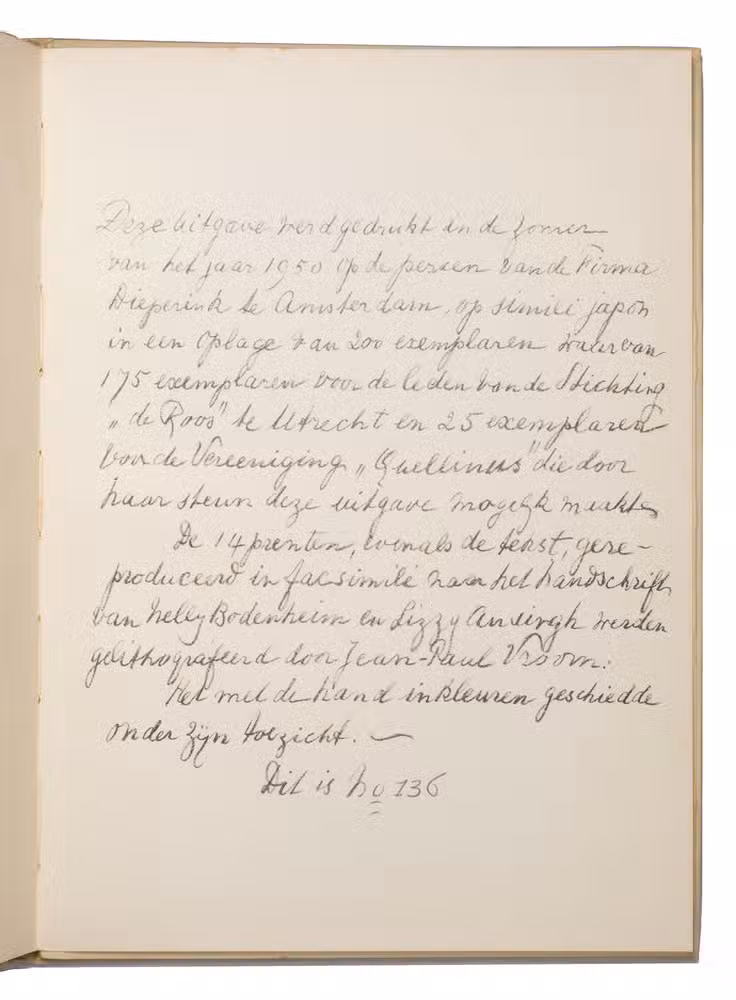 Deze uitgave werd gedrukt in de Zomer
van het jaar 1950 op de persen van de Firma
Dieperink te Amsterdam, op simili japon
in een oplage van 200 exemplaren waarvan
175 exemplaren voor de leden van de Stichting
„de Roos" te Utrecht en 25 exemplaren
voor de Vereeniging „Quellinus" die door
haar steun deze uitgave mogelyk maakte
De 14 prenten, evenals de tekst, gere-
produceerd in facsimilé naar het handschrift
van Nelly Bodenheim en Lizzy Ansingh werden
gelithografeerd door Jean-Paul Vroom.
Het met de hand inkleuren geschiedde
onder zyn toezicht. —
Dit is No 136